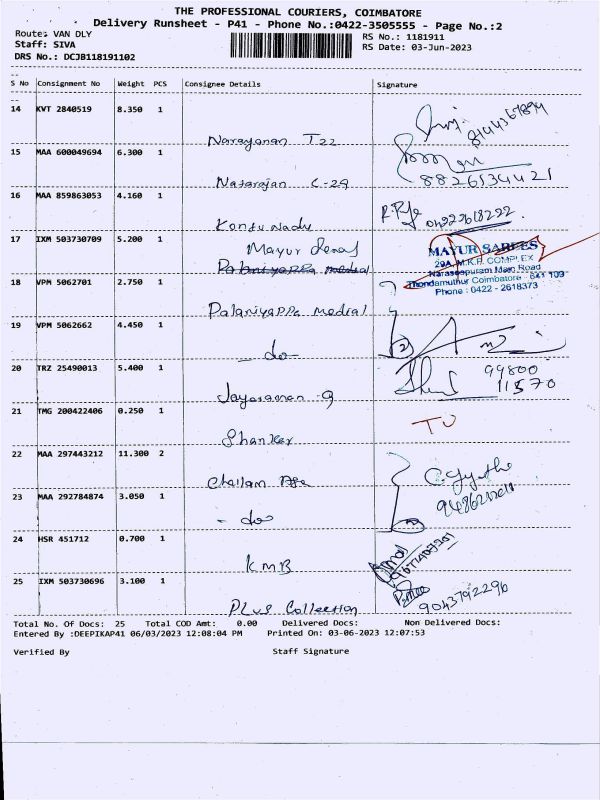 THE PROFESSIONAL COURIERS, COIMBATORE
Delivery Runsheet - P41 - Phone No.:0422-3505555 - Page No.:2
Route: VAN DLY RS No.: 1181911
Staff: SIVA RS Date: 03-Jun-2023
DRS No.: DCJB118191102
S No Consignment No Weight PCS Consignee Details Signature
14 KVT 2840519 8.350 1
Narayanan T22
15 MAA 600049694 6.300 1
Natarajan C-29 8826534421
16 MAA 859863053 4.160 1
Kongu Nadu
17 IXM 503730709 5.200 1
Mayur MAYUR SAREES
29A, M.K.P. COMPLEX
Palaniyappa medial Naraseepuram Main Road
Thondamuthur Coimbatore - 641 109
Phone : 0422 - 2618373
18 VPM 5062701 2.750 1
Palaniyappa medial
19 VPM 5062662 4.450 1
- do -
20 TRZ 25490013 5.400 1 99800
11570
Jayaraman G
21 TMG 200422406 0.250 1
Shanker
22 MAA 297443212 11.300 2
Challam
23 MAA 292784874 3.050 1
- do
24 HSR 451712 0.700 1
KMB
25 IXM 503730696 3.100 1
Plus Collection 9043792296
Total No. Of Docs: 25 Total COD Amt: 0.00 Delivered Docs: Non Delivered Docs:
Entered By :DEEPIKAP41 06/03/2023 12:08:04 PM Printed On: 03-06-2023 12:07:53
Verified By Staff Signature